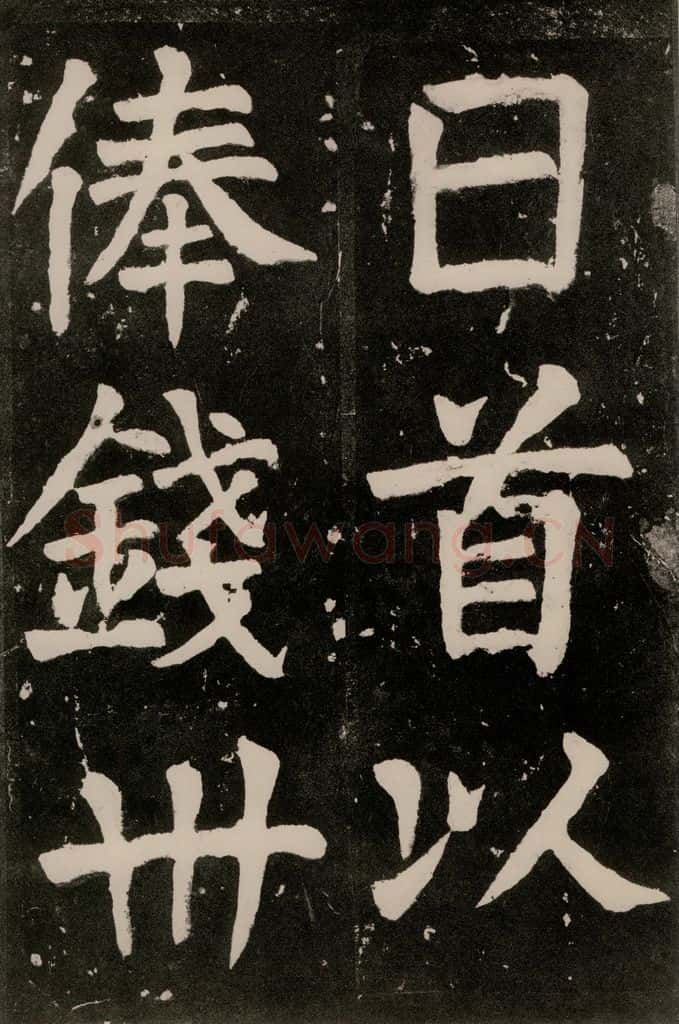 日首以
俸錢卅
Shufawang.CN